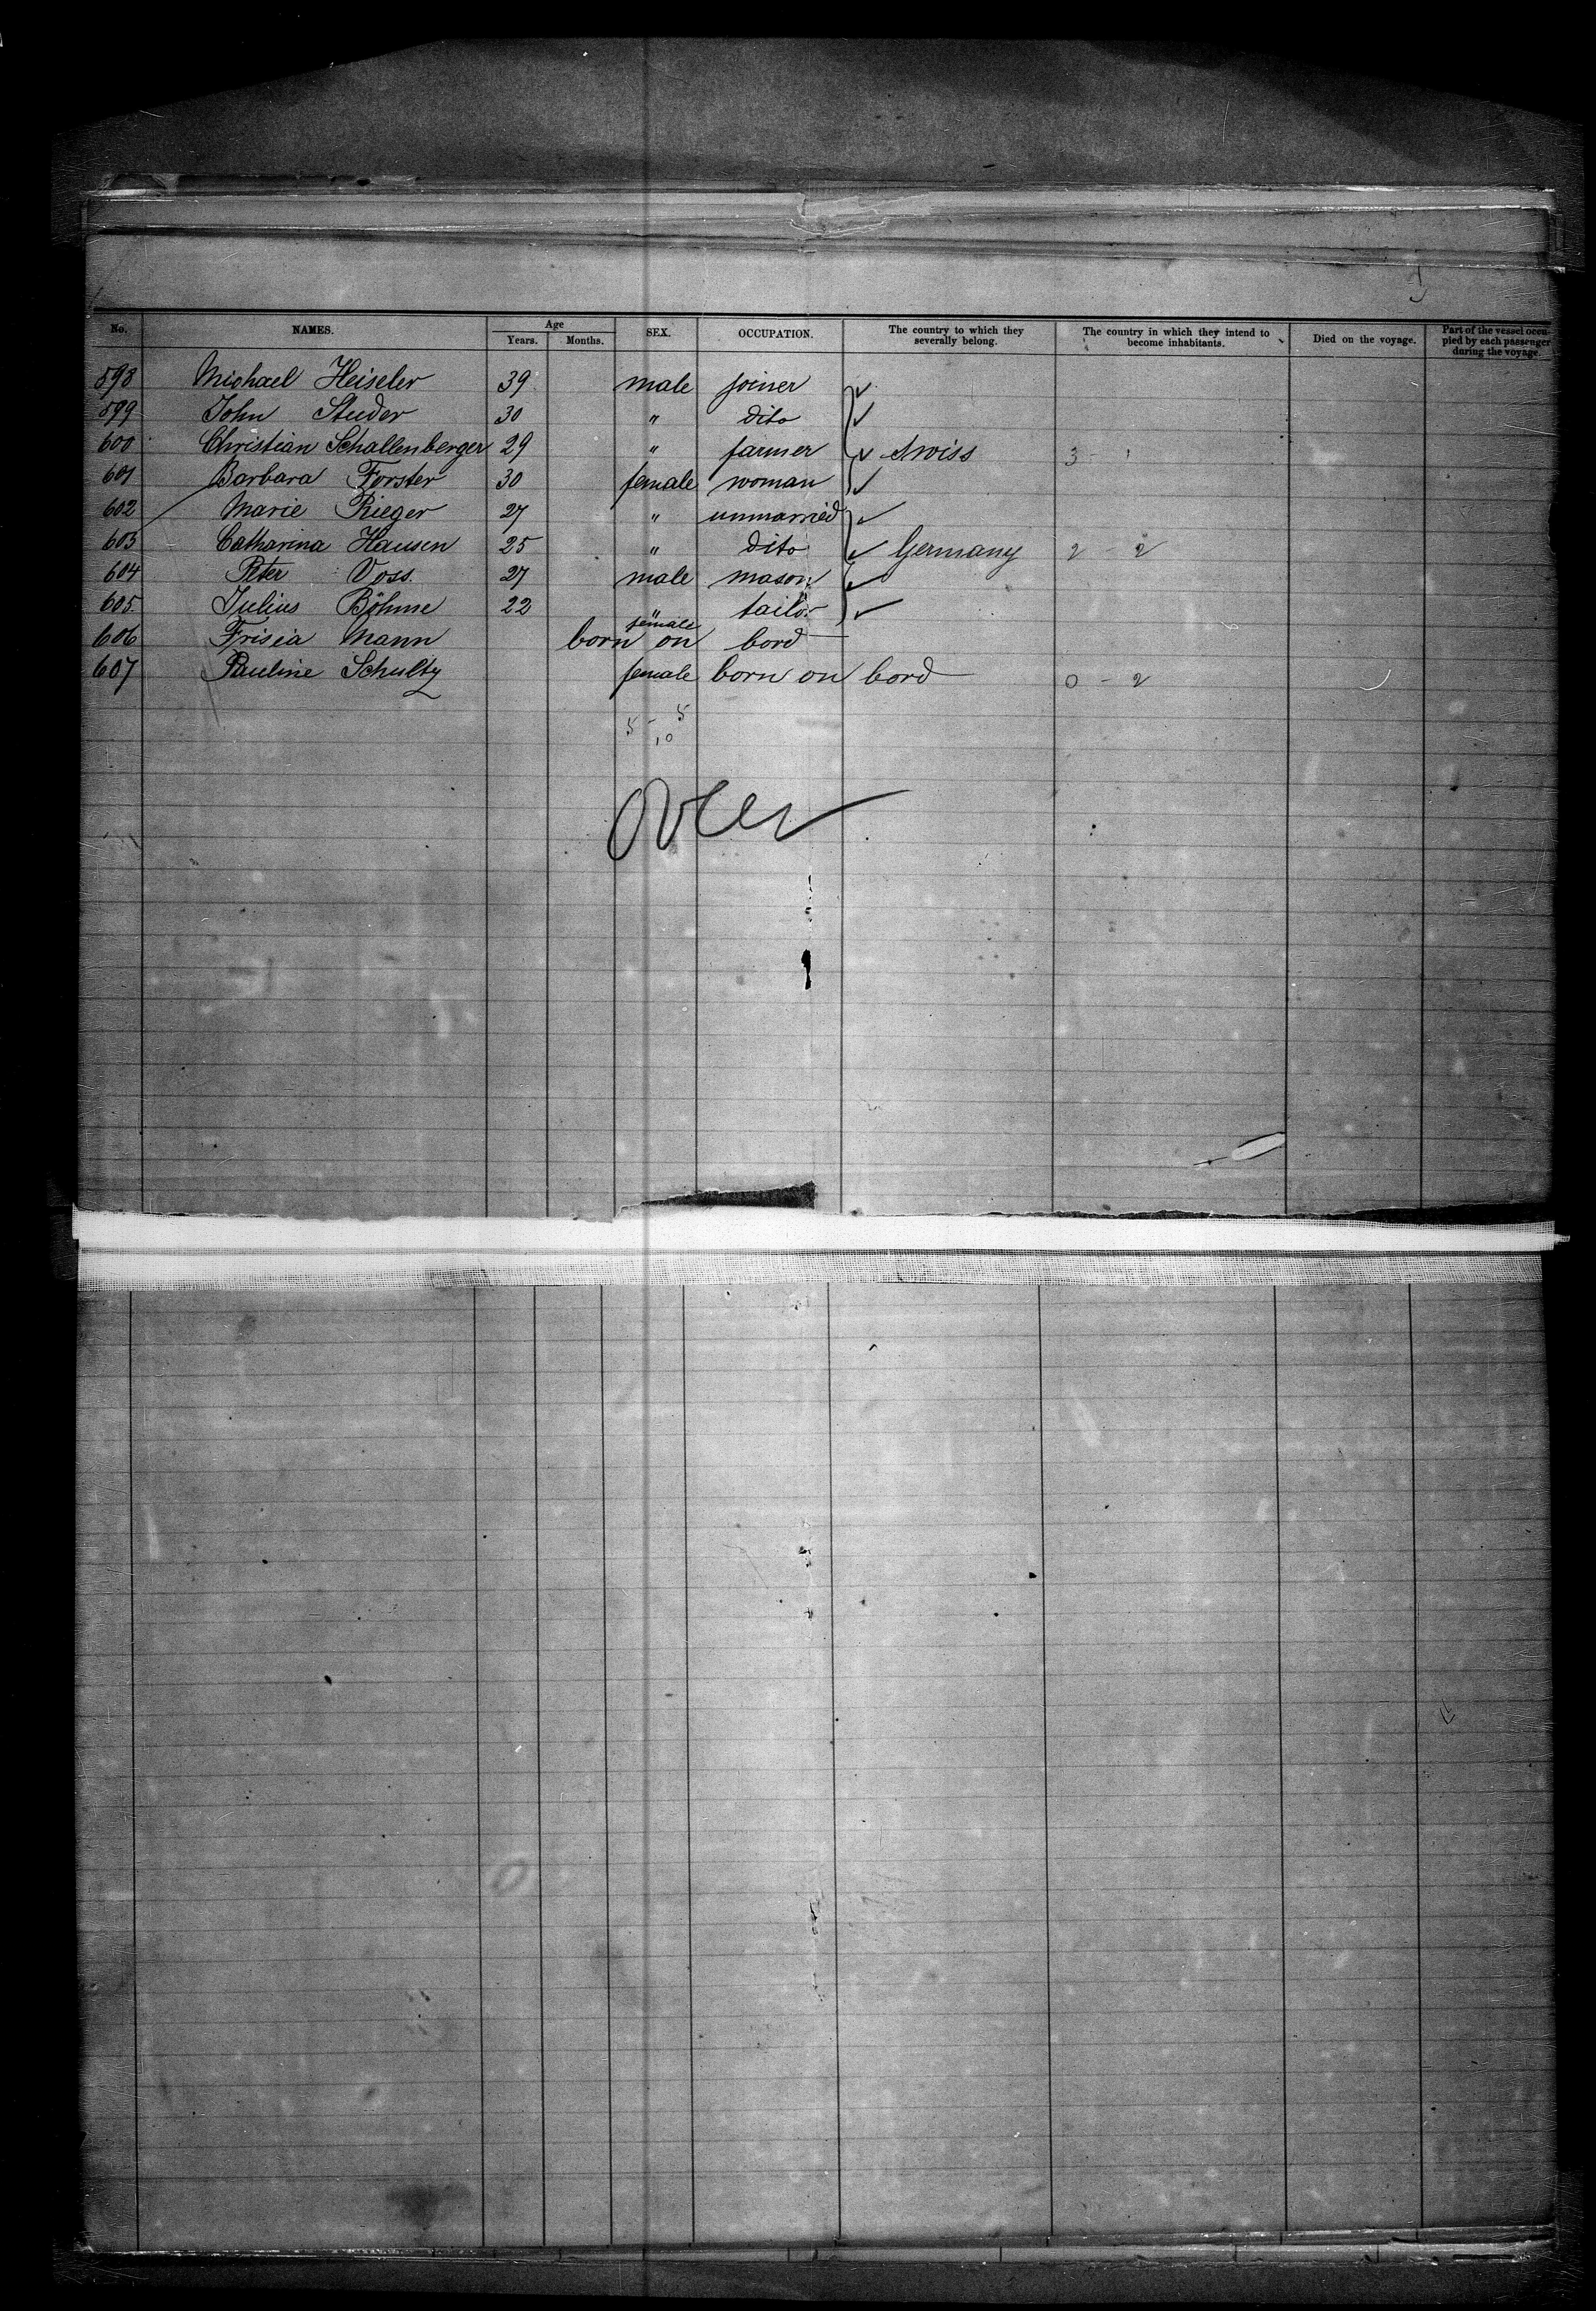 No. NAMES. Age Years. Months. SEX. OCCUPATION. The country to which they severally belong. The country in which they intend to become inhabitants. Died on the voyage. Part of the vessel occupied by each passenger during the voyage.
598 Michael Heiseler 39 male joiner
599 John Studer 30 " dito
600 Christian Schallenberger 29 " farmer Swiss 3 - 1
601 Barbara Forster 30 female woman
602 Marie Rieger 27 " unmarried
603 Catharina Hausen 25 " dito Germany 2 - 2
604 Peter Voss. 27 male mason
605 Julius Böhme 22 " tailor
606 Frisia Mann female born on bord
607 Pauline Schultz female born on bord 0 - 2
5 - 5
10
Over